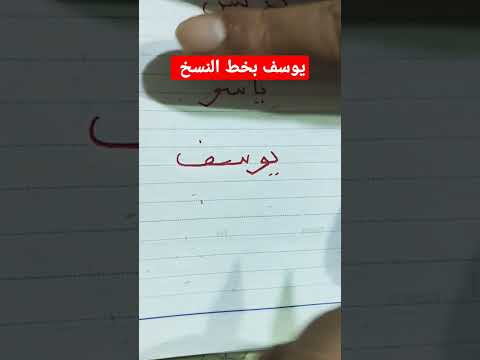 يوسف بخط النسخ
ياسو
يوسف